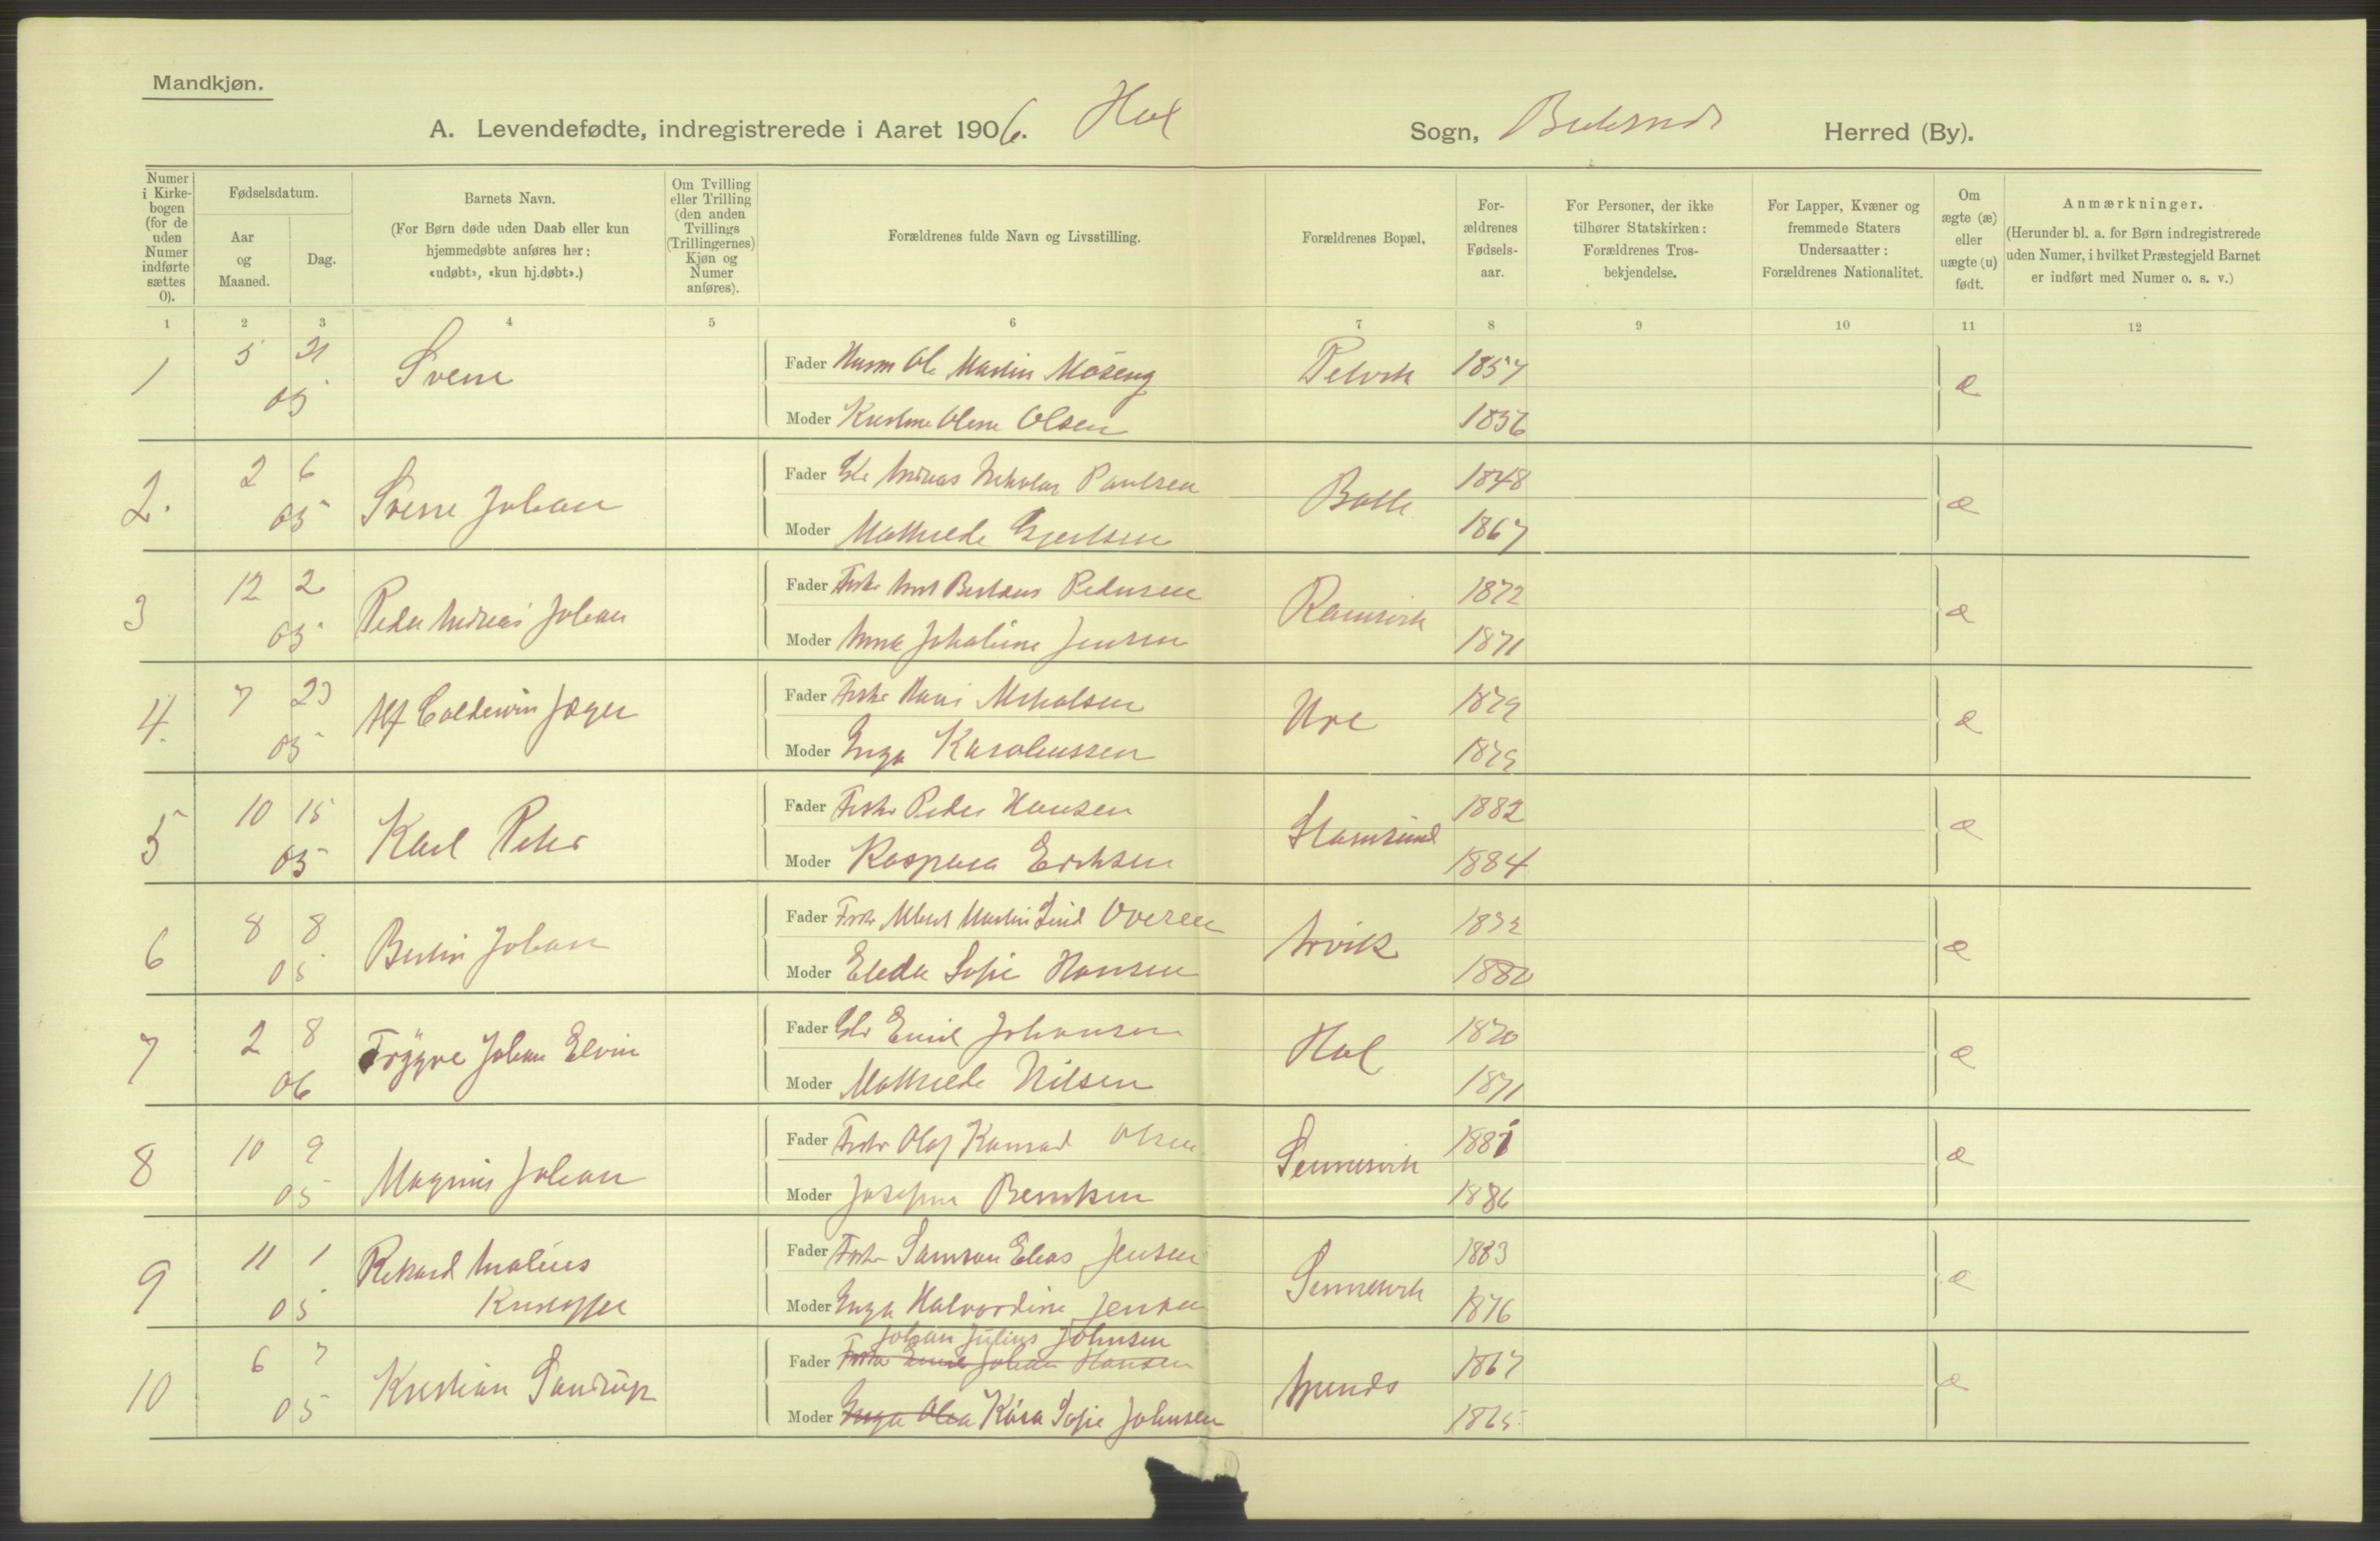 Mandkjøn.
A. Levendefødte, indregistrerede i Aaret 1906. Hol Sogn, Buksnes Herred (By).
Numer i Kirkebogen (for de uden Numer indførte sættes 0).
Fødselsdatum.
Aar og Maaned.
Dag.
Barnets Navn.
(For Børn døde uden Daab eller kun hjemmedøbte anføres her: «udøbt», «kun hj.døbt».)
Om Tvilling eller Trilling (den anden Tvillings (Trillingernes) Kjøn og Numer anføres).
Forældrenes fulde Navn og Livsstilling.
Forældrenes Bopæl.
Forældrenes Fødselsaar.
For Personer, der ikke tilhører Statskirken: Forældrenes Trosbekjendelse.
For Lapper, Kvæner og fremmede Staters Undersaatter: Forældrenes Nationalitet.
Om ægte (æ) eller uægte (u) født.
Anmærkninger.
(Herunder bl. a. for Børn indregistrerede uden Numer, i hvilket Præstegjeld Barnet er indført med Numer o. s. v.)
1 2 3 4 5 6 7 8 9 10 11 12
1 5 21 05 Sverre
Fader Husm Ole Martin Moseng Petvik 1857 æ
Moder Kristine Oline Olsen 1856
2. 2 6 05 Sverre Johan
Fader Gbr Andreas Nikolai Paulsen Balle 1848 æ
Moder Mathilde Gjertsen 1867
3 12 2 05 Peder Andreas Johan
Fader Fisker Bertheus Pedersen Ramsvik 1872 æ
Moder Anna Johaline Jensen 1871
4. 7 23 05 Alf Baldewin Jæger
Fader Fisker Hans Mikalsen Ure 1879 æ
Moder Inga Karoliussen 1879
5 10 15 05 Karl Peter
Fader Fisker Peder Hansen Stamsund 1882 æ
Moder Kaspara Eriksen 1884
6 8 8 05 Bertin Johan
Fader Fisker Albert Martin Lind Ovesen Arvik æ
Moder Eleda Sofie Hansen 1880
7 2 8 06 Trygve Johan Elvin
Fader Gbr Emil Johansen Hol 1870 æ
Moder Mathilde Nilsen 1871
8 10 9 05 Magnus Johan
Fader Fisker Olaf Konrad Olsen Sennesvik 1881 æ
Moder Josefine Berntsen 1886
9 11 1 05 Rikard Analius
Kristoffer
Fader Fisker Samson Elias Jensen Sennesvik 1883 æ
Moder Inga Halvordine Jensen 1876
10 6 7 05 Kristian Sandrup
Johan Julius Johnsen
Fader Fisker Emil Johan Hansen 1867 æ
Moder Inga Olea Kaia Sofie Johnsen 1865